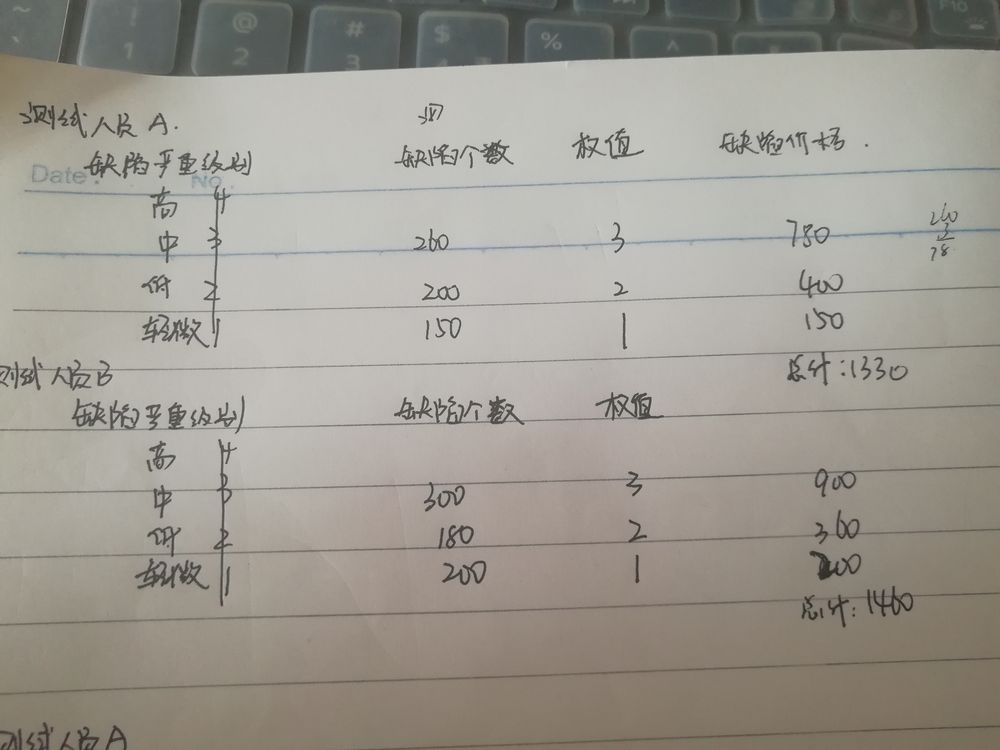 ! 1
@ 2
# 3
$ 4
%
^
F10
测试人员 A.
缺陷严重级别 缺陷个数 权值 缺陷价格.
Date. No.
高 4
中 3 260 3 780
低 2 200 2 400
轻微 1 150 1 150
260
3
78
总计:1330
测试人员B
缺陷严重级别 缺陷个数 权值
高 4
中 3 300 3 900
低 2 180 2 360
轻微 1 200 1 200
总计:1460
测试人员A